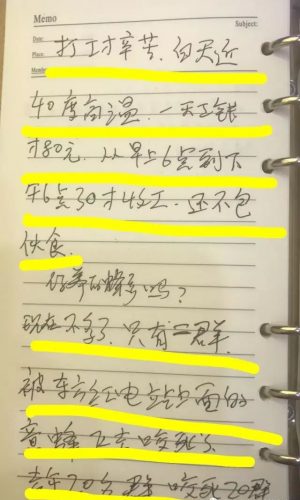 Memo Subject:
Date:
Place:
打工才辛苦,白天近
40度高温,一天工钱
才80元,从早上6点到下
午6点30才收工,还不包
伙食.
你养的蜂多吗?
现在不多了,只有群.
被东方红电站上面的
蜂咬死了
去年70多群 咬死20群